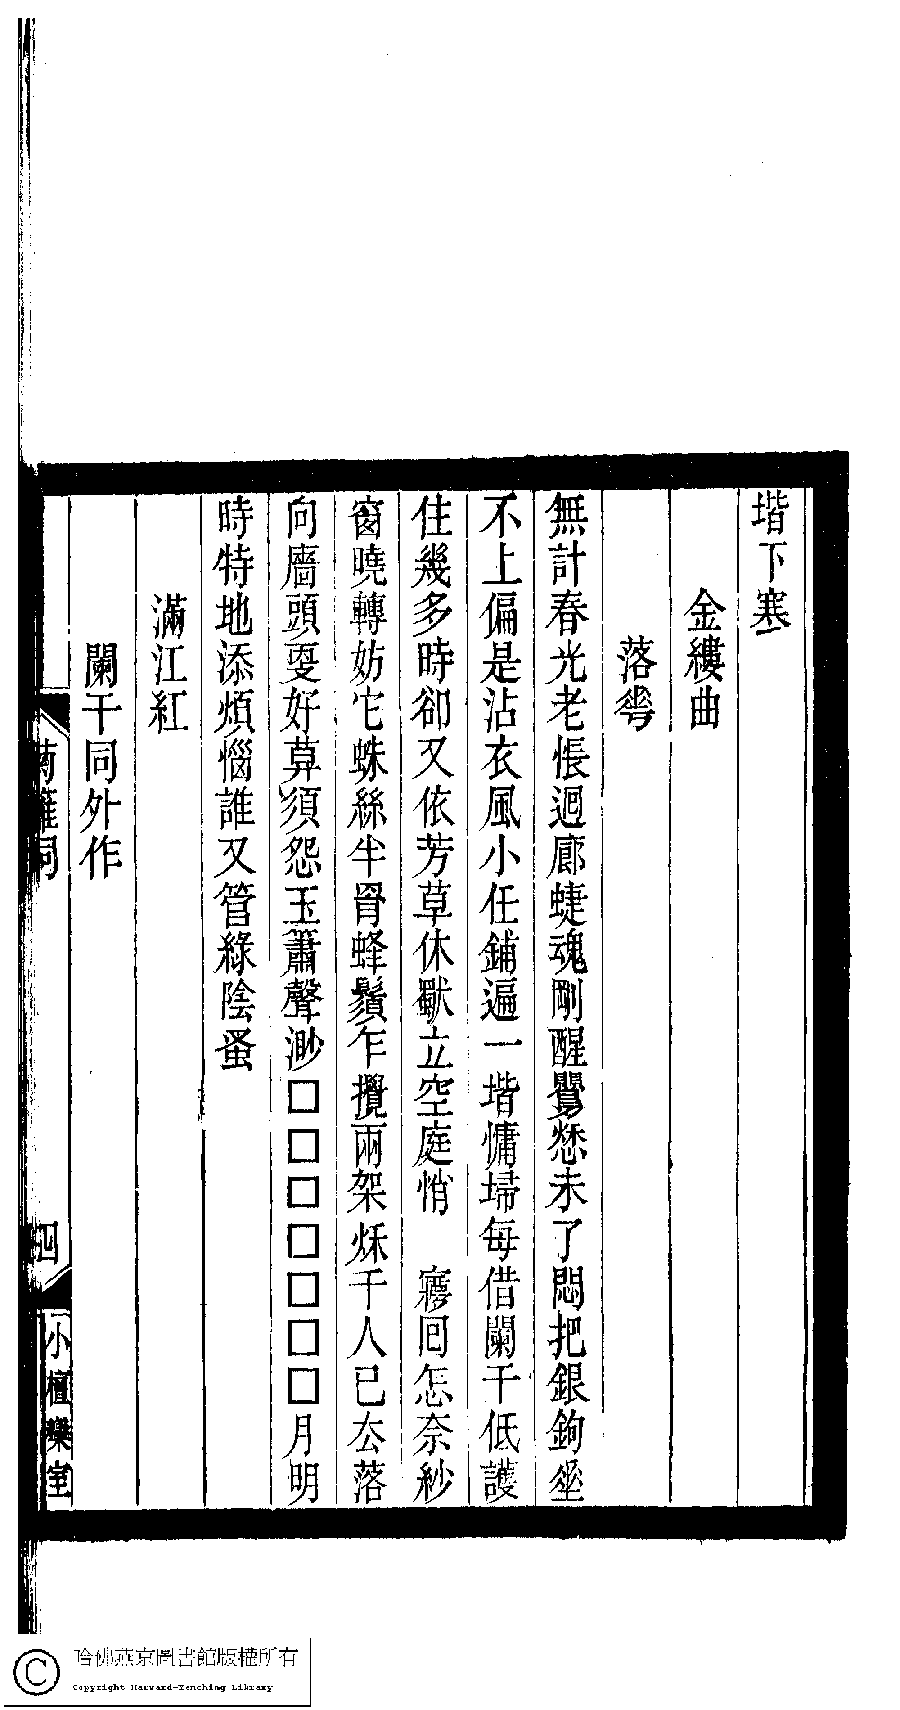 堦下寒
金縷曲
落蕚
無計春光老悵迴廊蜨魂剛醒覺愁未了悶把銀鉤㘴
不上偏是沾衣風小任鋪遍一堦慵埽每借闌干低護
住幾多時卻又依芳草休獃立空庭悄　寱囘怎奈紗
窗曉轉妨它蛛絲半罥蜂鬚乍攪兩架秌千人已厺落
向牆頭耍好莫須怨玉簫聲渺□□□□□□□月明
時特地添煩惱誰又管綠陰蚤
滿江紅
闌干同外作
菊籬詞
四
小檀欒室
哈佛燕京圖書館版權所有
Copyright Harvard-Yenching Library